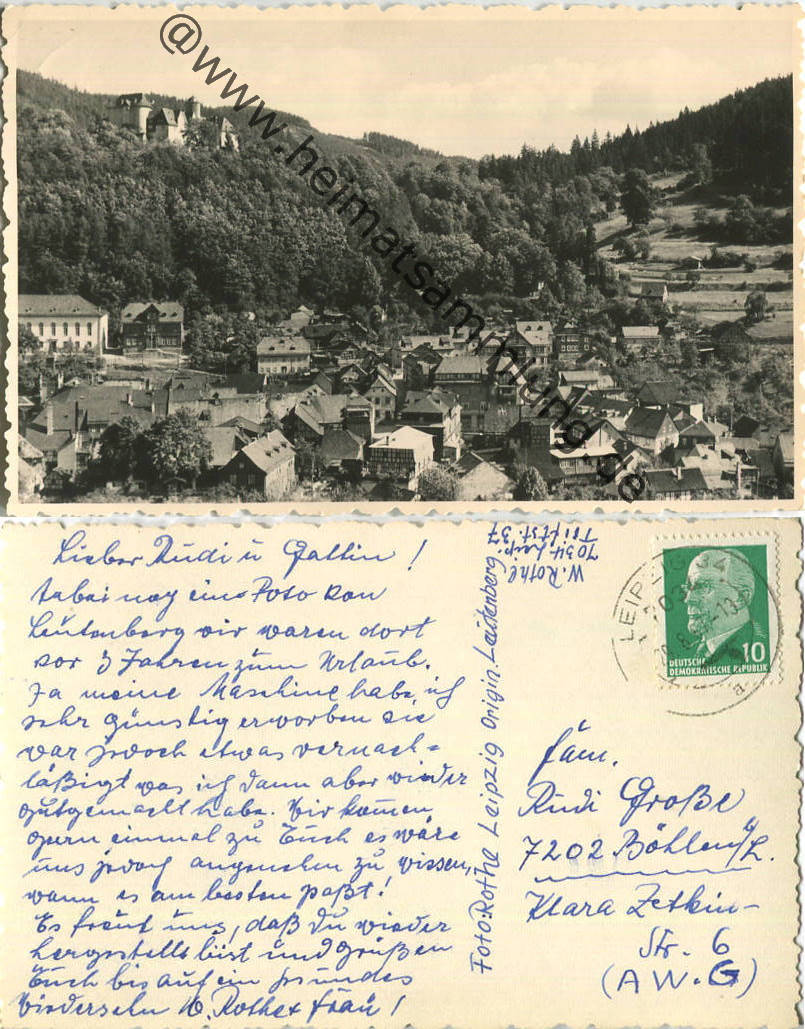 @www.heimatsammlung.de
Lieber Rudi u Gattin!
anbei noch eine Foto von
Leutenberg wir waren dort
vor 3 Jahren zum Urlaub.
Ja meine Maschine habe ich
sehr günstig erworben sie
war jedoch etwas vernach=
läßigt was ich dann aber wieder
gutgemacht habe. Wir kommen
gern einmal zu Euch es wäre
uns jedoch angenehm zu wissen,
wann es am besten paßt!
Es freut uns, daß Du wieder
hergestellt bist und grüßen
Euch bis auf ein gesundes
Wiedersehn W. Rothe + Frau!
Foto: Rothe Leipzig Origin. Leutenberg
W. Rothe
7034 Leip.
Triftst. 37
LEIPZIG 34
7034
10
DEUTSCHE
DEMOKRATISCHE REPUBLIK
Fam.
Rudi Große
7202 Böhlen b/L.
Klara Zetkin-
Str. 6
(AW.G)